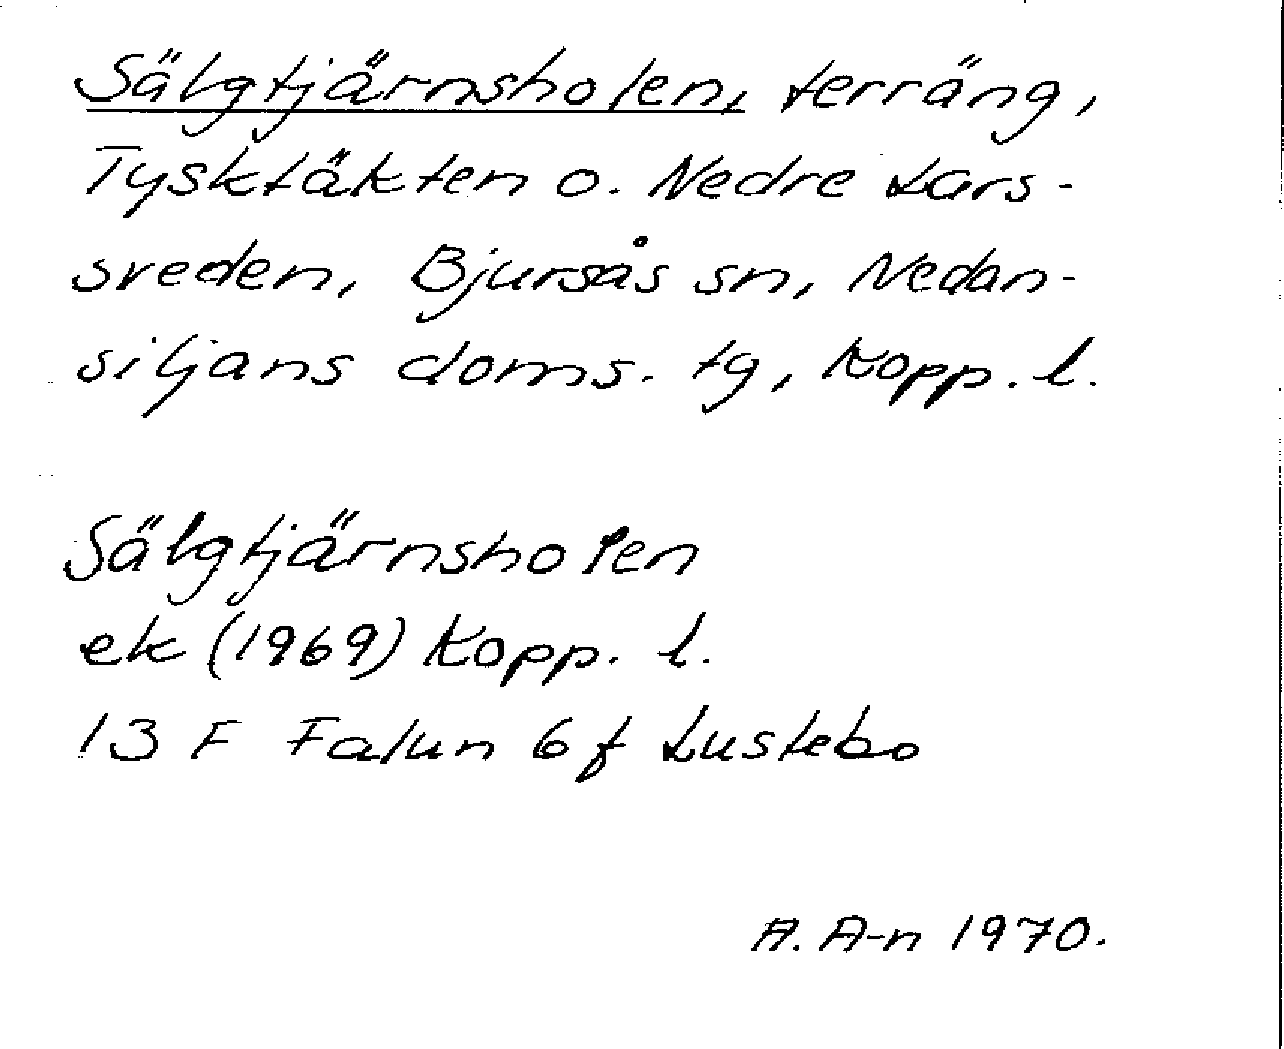 Sälgtjärnsholen, terräng,
Tysktäkten o. Nedre Lars-
sveden, Bjursås sn, Nedan-
siljans doms. tg, Kopp. l.
Sälgtjärnsholen
ek (1969) Kopp. l.
13 F Falun 6 f Lustebo
A. A-n 1970.